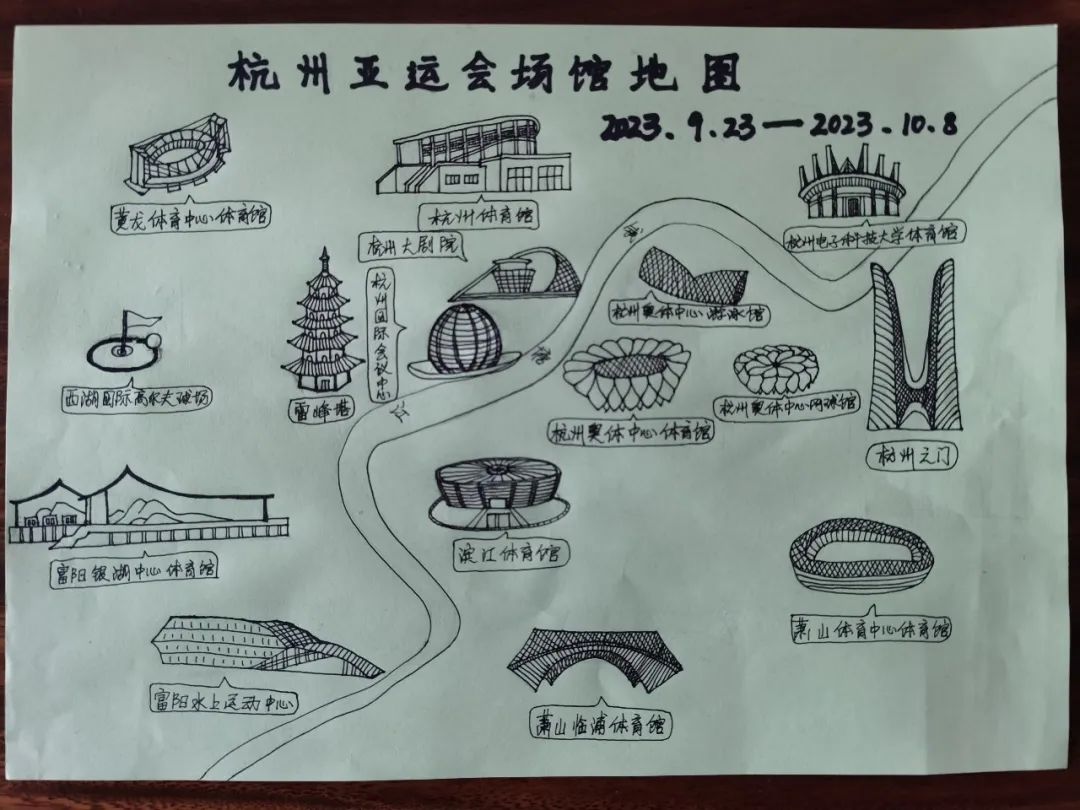 杭州亚运会场馆地图
2023.9.23—2023.10.8
黄龙体育中心体育馆
杭州体育馆
杭州电子科技大学体育馆
杭州大剧院
杭州国际会议中心
杭州奥体中心游泳馆
西湖国际高尔夫球场
雷峰塔
杭州奥体中心网球馆
杭州奥体中心体育馆
杭州之门
钱
塘
江
滨江体育馆
富阳银湖中心体育馆
萧山体育中心体育馆
富阳水上运动中心
萧山临浦体育馆